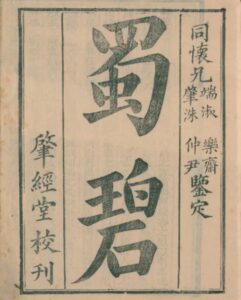 同懷兄端淑肇洙樂齋仲尹鑒定
蜀碧
肇經堂校刊